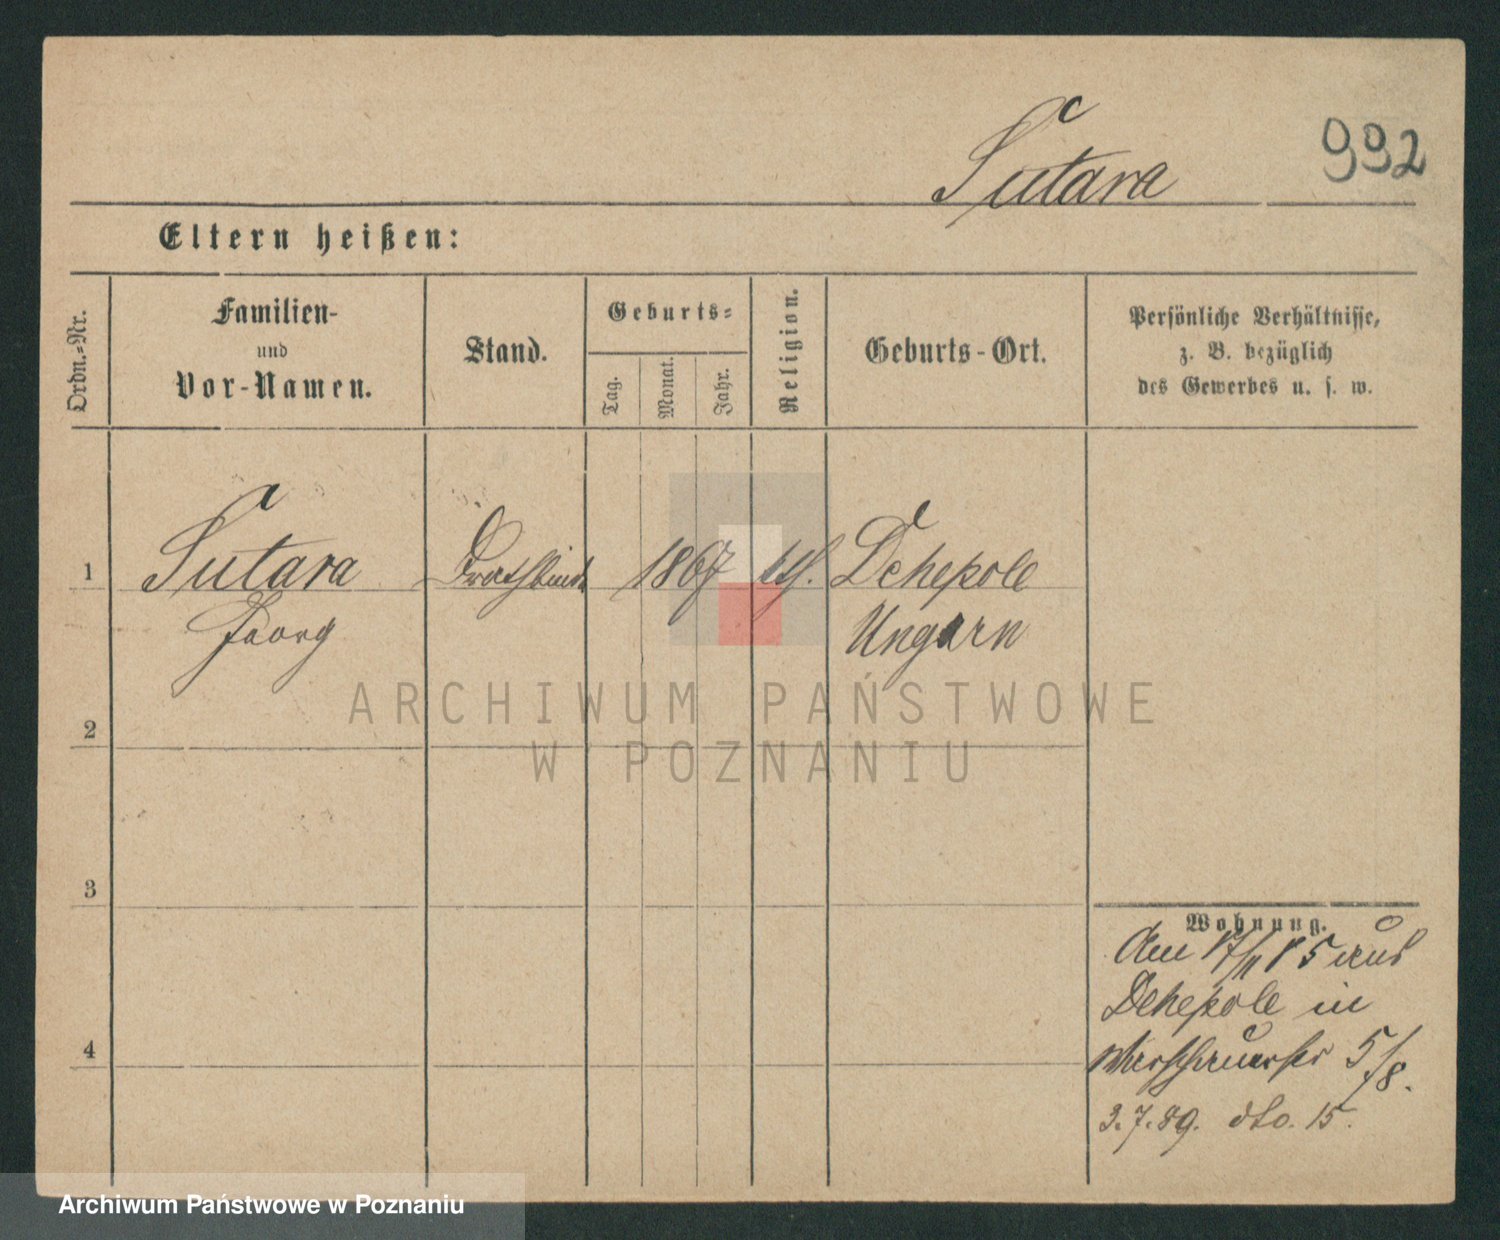 Sutara
992
Eltern heißen:
Ordn.=Nr.
Familien-
und
Vor-Namen.
Stand.
Geburts=
Tag.
Monat.
Jahr.
Religion.
Geburts-Ort.
Persönliche Verhältnisse,
z. B. bezüglich
des Gewerbes u. s. w.
1
Sutara
Georg
1867
Dehepole
Ungarn
2
3
4
Wohnung.
Am 17/11 85 aus
Dehepole in
5/8.
3.7.89. dto. 15.
ARCHIWUM PAŃSTWOWE
W POZNANIU
Archiwum Państwowe w Poznaniu